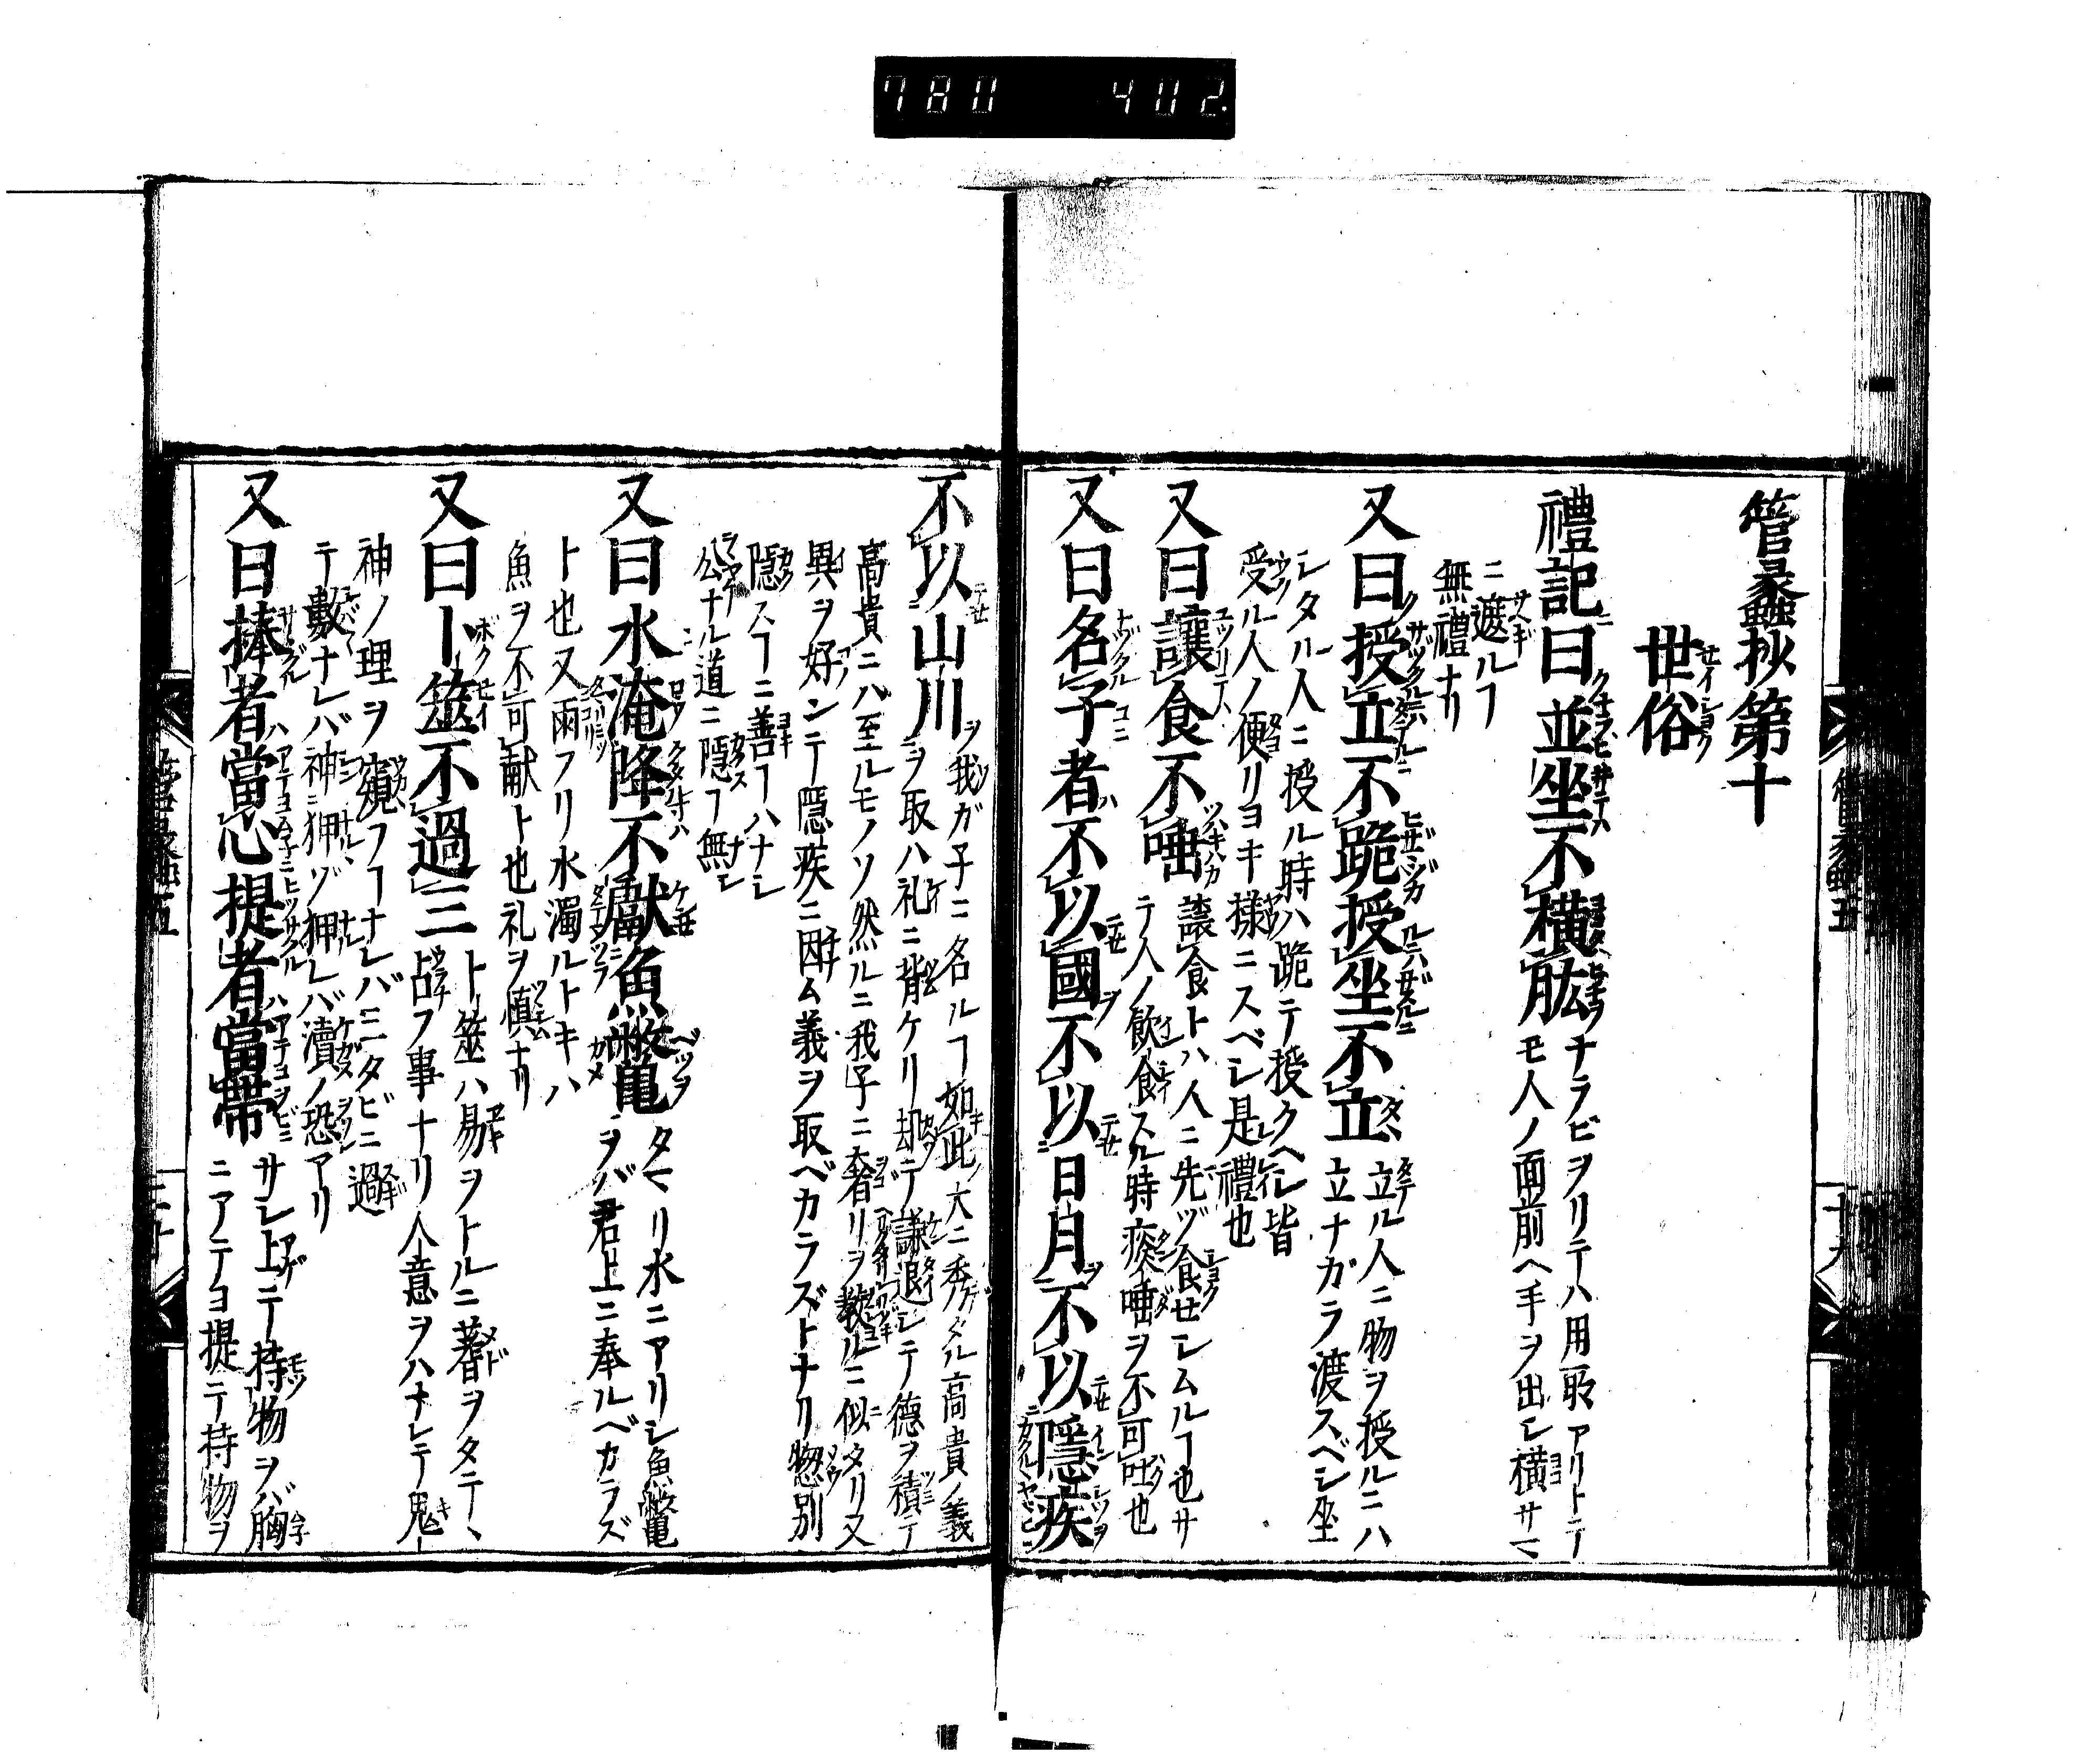 780 402
管蠡抄第十
世俗
禮記曰並坐不横肱ナラビヲリテハ用所アリトテ
モ人ノ面前ヘ手ヲ出シ横サマ
ニ遮ルヿ
無禮ナリ
又曰授立不跪授坐不立立ル人ニ物ヲ授ルニハ
立ナガラ渡スベシ坐
シタル人ニ授ル時ハ跪テ授クヘシ皆
受ル人ノ便リヨキ様ニスベシ是禮也
又曰讓食不唾讓食トハ人ニ先ヅ食セシムルヿ也サ
テ人ノ飲食スル時痰唾ヲ不可吐也
又曰名子者不以國不以日月不以隱疾
不以山川我ガ子ニ名ルヿ如此大ニ秀タル高貴ノ義
ヲ取ハ礼ニ背ケリ却テ謙退シテ德ヲ積テ
高貴ニハ至ルモノソ然ルニ我子ニ奢リヲ教ルニ似タリ又
異ヲ好ンテ隱疾ニ因ム義ヲ取ベカラズトナリ惣別
隱スヿニ善ヿハナシ
公ナル道ニ隱ヿ無シ
又曰水淹降不獻魚鱉タマリ水ニアリシ魚鱉
ヲバ君上ニ奉ルベカラズ
ト也又雨フリ水濁ルトキハ
魚ヲ不可献ト也礼ヲ慎ナリ
又曰卜筮不過三卜筮ハ易ヲトルニ蓍ヲタテヽ
占フ事ナリ人意ヲハナレテ鬼
神ノ理ヲ窺フヿナレバ三タビニ過
テ數ナレバ神ニ狎ゾ狎レバ瀆ノ恐アリ
又曰捧者當心提者當帶サシ上ゲテ持物ヲバ胸
ニアテヨ提テ持物ヲ